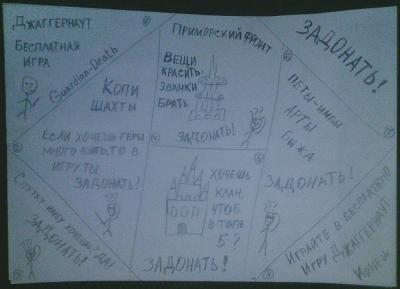 ДЖАГГЕРНАУТ
БЕСПЛАТНАЯ
ИГРА
Guardian-Death
КОПИ
ШАХТЫ
ПРИМОРСКИЙ ФРОНТ
ВЕЩИ
КРАСИТЬ,
ЗВАНКИ
БРАТЬ
ЗАДОНАТЬ!
ЗАДОНАТЬ!
ПЕТЫ-ИМБЫ
АРТЫ
БИЖА
ЗАДОНАТЬ!
ЕСЛИ ХОЧЕШЬ ГЕРЫ
МНОГО ВЗЯТЬ, ТО В
ИГРУ ТЫ
ЗАДОНАТЬ!
ХОЧЕШЬ
КЛАН,
ЧТОБ
В ТОПЕ
5?
ЗАДОНАТЬ!
ХОЧЕШЬ? ДА!
ЗАДОНАТЬ!
ИГРАЙТЕ В БЕСПЛАТНО
ИГРУ ДЖАГГЕРНАУТ